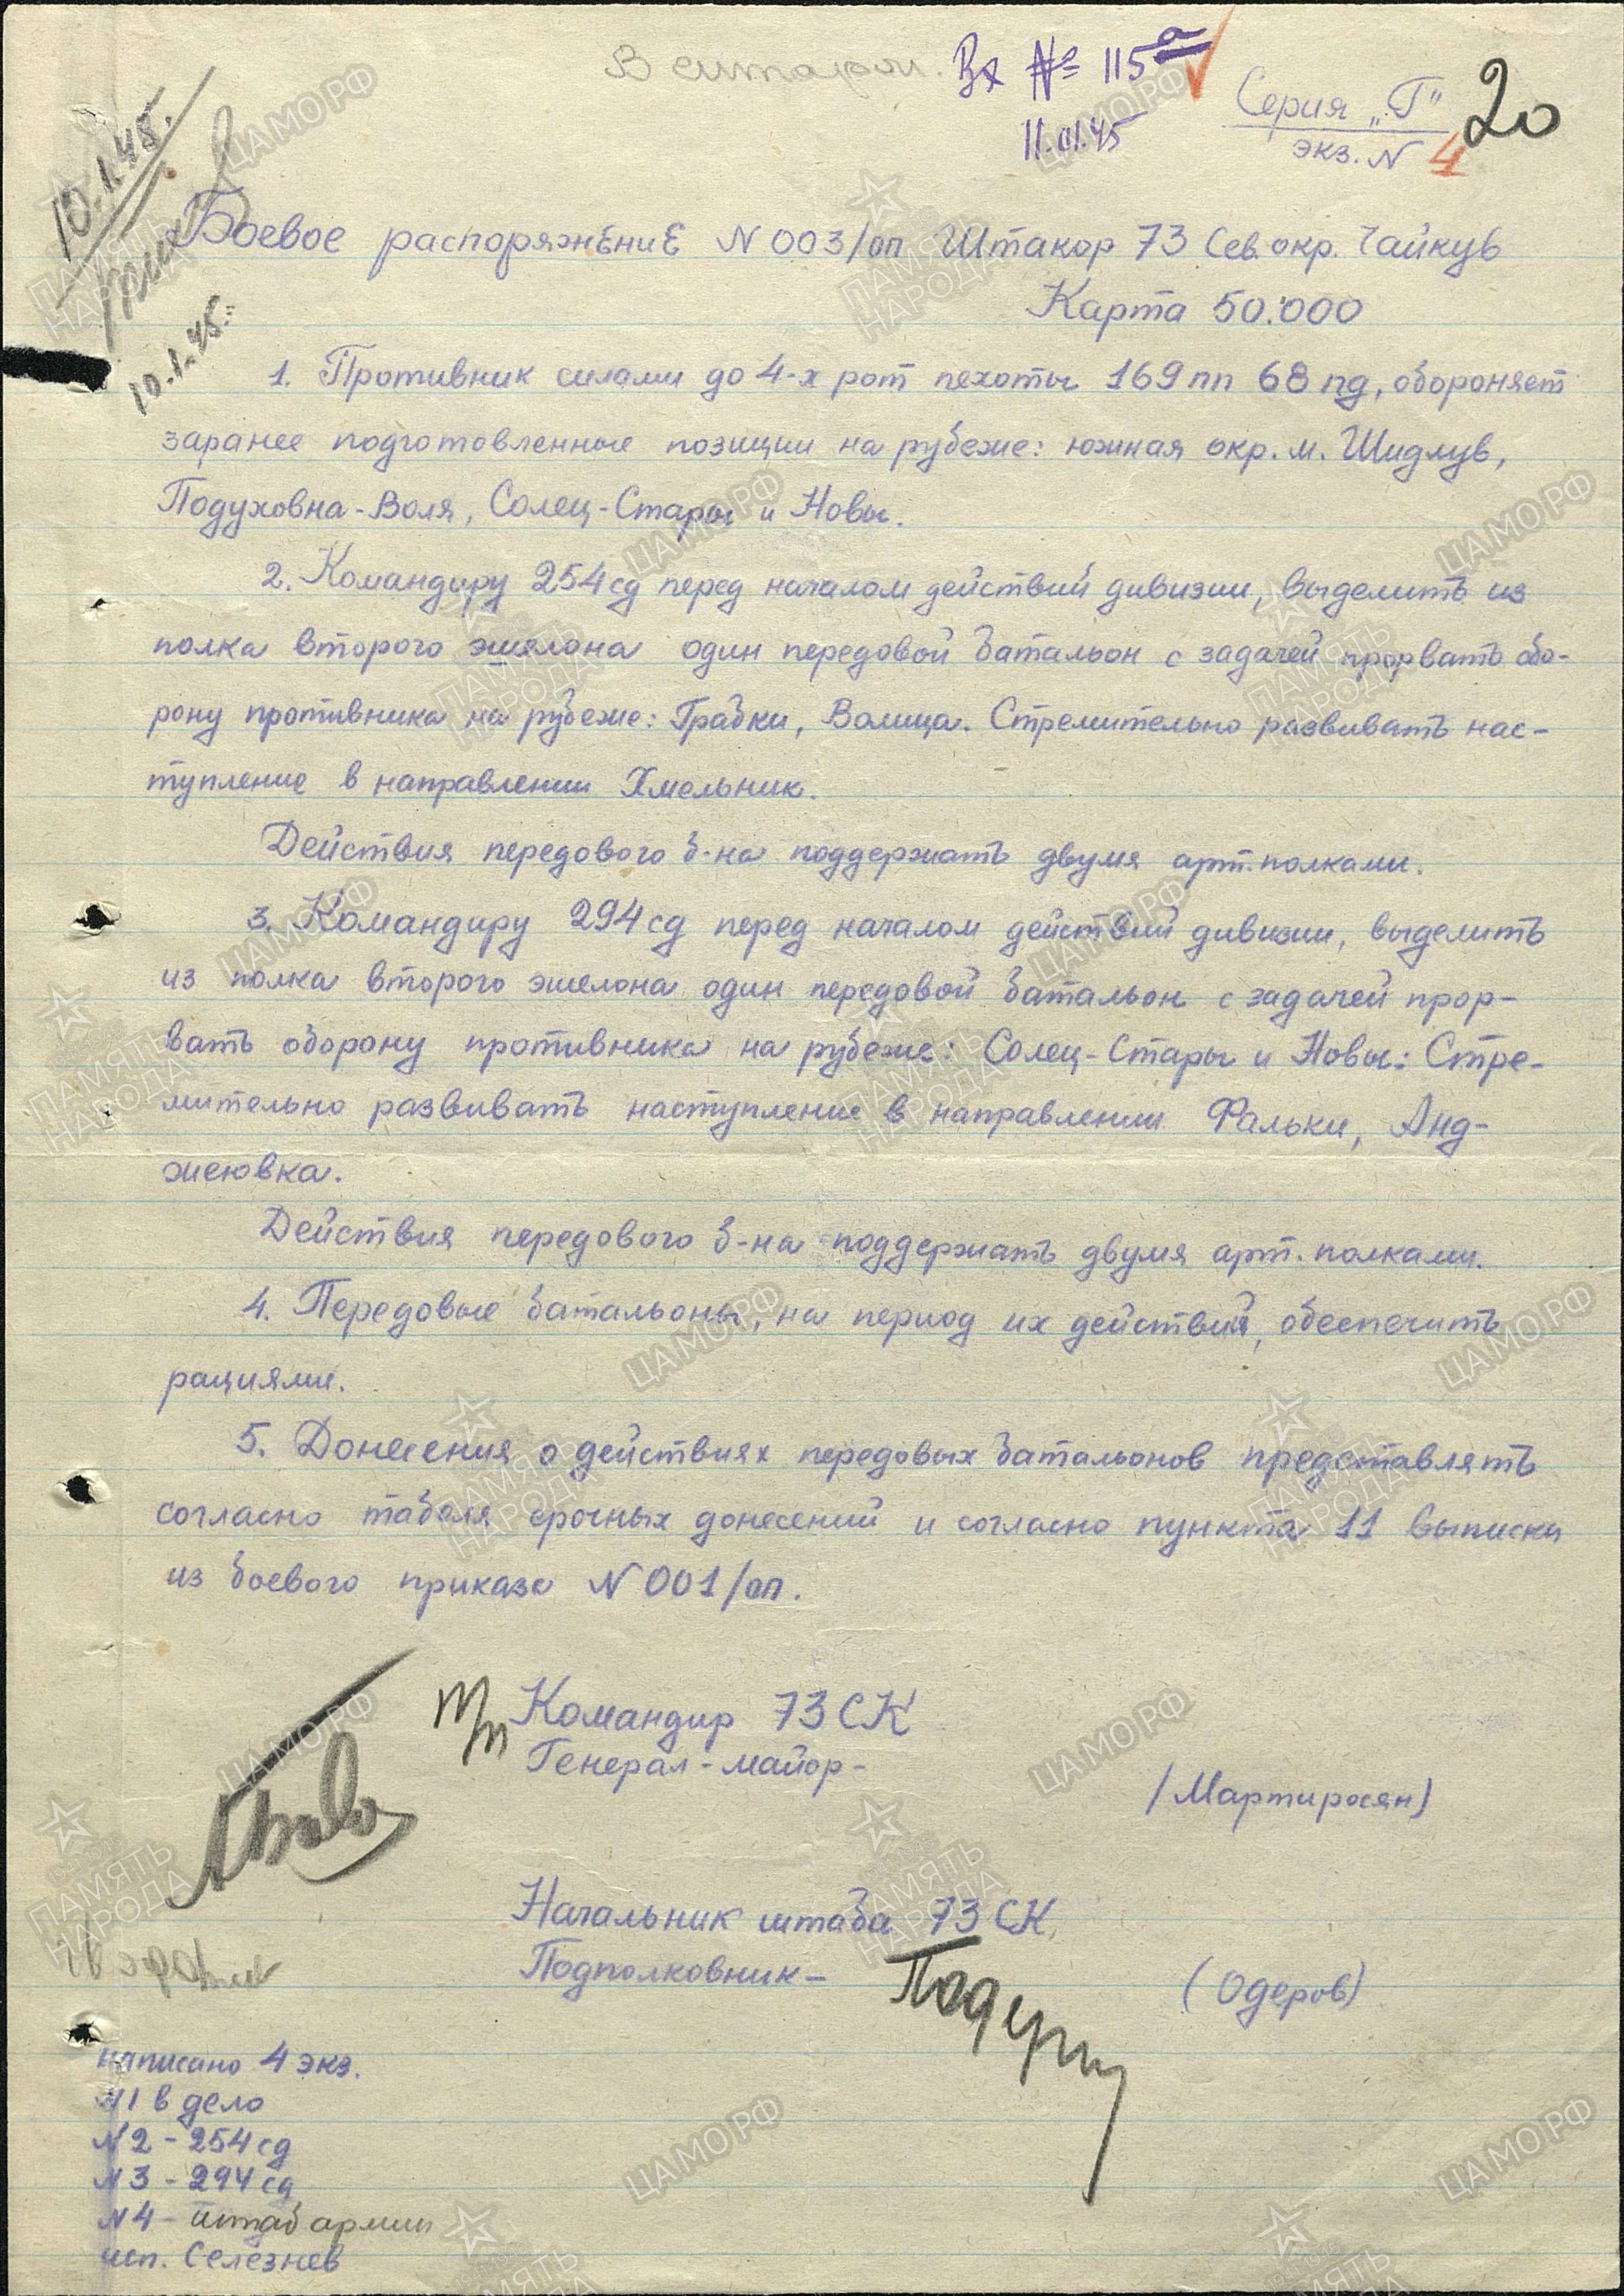 Вх № 115а
11.01.45
Серия „Г" 20
экз. N 4
10.1.45.
10.1.45.
Боевое распоряжение N 003/оп Штакор 73 Сев. окр. Чайкув
Карта 50.000
1. Противник силами до 4-х рот пехоты 169 пп 68 пд, обороняет
заранее подготовленные позиции на рубеже: южная окр. м. Шидлув,
Подуховна-Воля, Солец-Стары и Новы.
2. Командиру 254 сд перед началом действий дивизии, выделить из
полка второго эшелона один передовой батальон с задачей прорвать обо-
рону противника на рубеже: Грабки, Волица. Стремительно развивать нас-
тупление в направлении Хмельник.
Действия передового б-на поддержать двумя арт. полками.
3. Командиру 294 сд перед началом действий дивизии, выделить
из полка второго эшелона один передовой батальон с задачей прор-
вать оборону противника на рубеже: Солец-Стары и Новы: Стре-
мительно развивать наступление в направлении Фальки, Анд-
жеювка.
Действия передового б-на поддержать двумя арт. полками.
4. Передовые батальоны, на период их действий, обеспечить
рациями.
5. Донесения о действиях передовых батальонов представлять
согласно табеля срочных донесений и согласно пункта 11 выписки
из боевого приказа N 001/оп.
Командир 73 СК
Генерал-майор-
/Мартиросян/
Начальник штаба 73 СК
Подполковник-
(Одеров)
написано 4 экз.
N1 в дело
N2 - 254 сд
N3 - 294 сд
N4 - штаб армии
исп. Селезнев
ПАМЯТЬ НАРОДА
ЦАМО.РФ